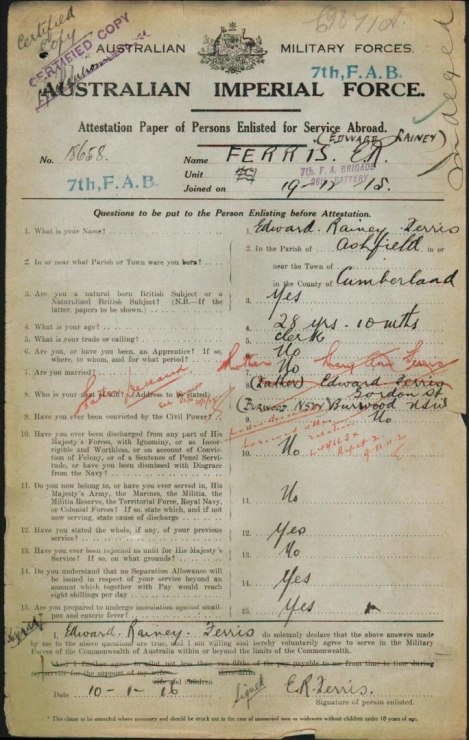 Certified
Copy
CERTIFIED COPY
AUSTRALIAN MILITARY FORCES.
7th, F.A.B.
AUSTRALIAN IMPERIAL FORCE.
Attestation Paper of Persons Enlisted for Service Abroad.
(EDWARD RAINEY)
No. 18658. Name FERRIS. E.R.
Unit 7th. F. A. BRIGADE
BATTERY
7th, F.A.B. Joined on 19-12-15.
Questions to be put to the Person Enlisting before Attestation.
1. What is your Name? 1. Edward. Rainey. Ferris
2. In or near what Parish or Town were you born? 2. In the Parish of Ashfield in or
near the Town of
in the County of Cumberland
3. Are you a natural born British Subject or a
Naturalized British Subject? (N.B.—If the
latter, papers to be shown.) 3. Yes
4. What is your age? 4. 28 yrs. 10 mths
5. What is your trade or calling? 5. Clerk
6. Are you, or have you been, an Apprentice? If so,
where, to whom, and for what period? 6. No
7. Are you married? 7. No
Father Deceased
Mother
8. Who is your next of kin? (Address to be stated) 8. (Father) Edward Ferris
Gordon St
(Burwood NSW) Burwood NSW
9. Have you ever been convicted by the Civil Power? 9. No
10. Have you ever been discharged from any part of His
Majesty's Forces, with Ignominy, or as Incor-
rigible and Worthless, or on account of Convic-
tion of Felony, or of a Sentence of Penal Servi-
tude, or have you been dismissed with Disgrace
from the Navy? 10. No.
11. Do you now belong to, or have you ever served in, His
Majesty's Army, the Marines, the Militia, the
Militia Reserve, the Territorial Force, Royal Navy,
or Colonial Forces? If so, state which, and if not
now serving, state cause of discharge 11. No
12. Have you stated the whole, if any, of your previous
service? 12. Yes
13. Have you ever been rejected as unfit for His Majesty's
Service? If so, on what grounds? 13. No
14. Do you understand that no Separation Allowance will
be issued in respect of your service beyond an
amount which together with Pay would reach
eight shillings per day 14. Yes
15. Are you prepared to undergo inoculation against small-
pox and enteric fever? 15. Yes
I, Edward. Rainey. Ferris do solemnly declare that the above answers made
by me to the above questions are true, and I am willing and hereby voluntarily agree to serve in the Military
Forces of the Commonwealth of Australia within or beyond the limits of the Commonwealth.
And I further agree to allot not less than two-fifths of the pay payable to me from time to time during
my service for the support of my wife.
wife and children
Date 10-1-16 Signed E.R. Ferris.
Signature of person enlisted.
* This clause to be amended where necessary and should be struck out in the case of unmarried men or widowers without children under 18 years of age.